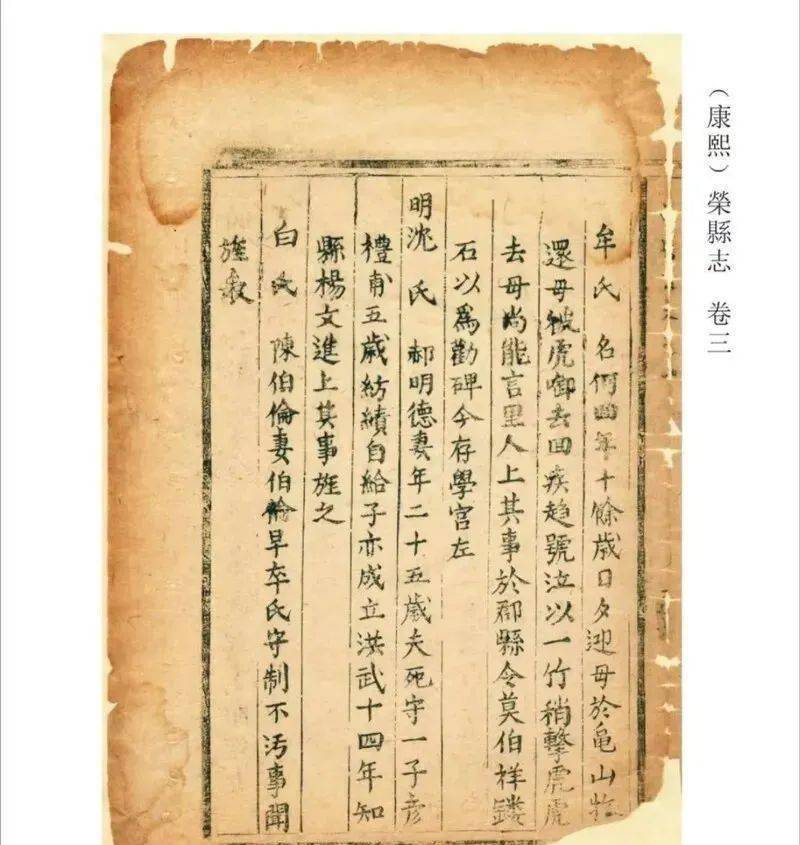 （康熙）榮縣志 卷三
牟氏 名何囬年十餘歲日夕迎母於亀山
還母被虎啣去回疾趨號泣以一竹稍擊虎虎
去母尚能言里人上其事於郡縣令莫伯祥鏤
石以爲勸碑今存學宮左
明沈氏 郝明德妻年二十五歲夫死守一子彥
禮甫五歲紡績自給子亦成立洪武十四年知
縣楊文進上其事旌之
白氏 陳伯倫妻伯倫早卒氏守制不污事聞
旌